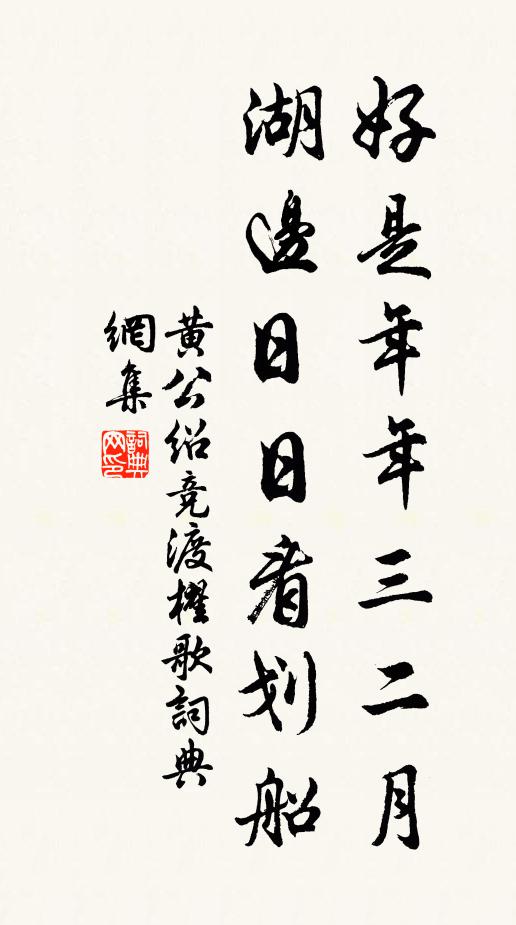 好是年年三二月
湖邊日日看划船
黄公绍竞渡櫂歌詞典
網集
詞典网印